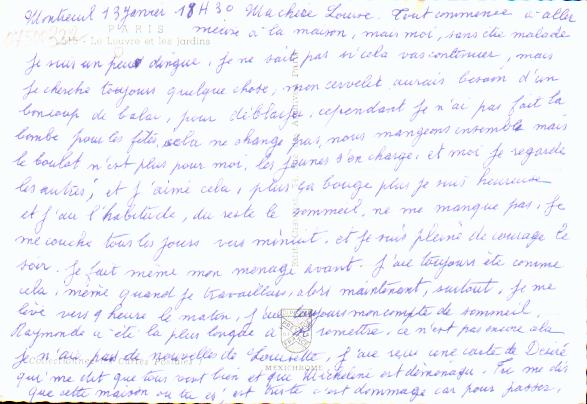 Montreuil 13 Janvier 18H30 Ma chère Louve. Tout commence a aller
PARIS
mieux à la maison, mais moi, sans être malade
Le Louvre et les jardins
je suis un peu dingue, je ne sait pas si cela vas continuer, mais
je cherche toujours quelque chose, mon cervelet aurais besoin d'un
boncoup de balai, pour déblayer, cependant je n'ai pas fait la
bombe pour les fêtes, cela ne change pas, nous mangeons ensemble mais
le boulot n'est plus pour moi, les jeunes s'en charge, et moi je regarde
les autres, et j'aime cela, plus ça bouge plus je suis heureuse
et j'au l'habitude, du reste le sommeil, ne me manque pas, je
me couche tous les jours vers minuit, et je suis pleine de courage le
soir. Je fait même mon menage avant. J'ai toujours été comme
cela, même quand je travaillais, alors maintenant, surtout, je me
lève vers 9 heure le matin, j'ai toujours mon compte de sommeil.
Raymonde a été la plus longue à se remettre, ce n'est pas encore ala
MEXICHROME
je n'ai pas de nouvelles de Louisette, j'ai reçu une carte de Désiré
qui me dit que tous vont bien et que Micheline est demenagu. Tu me dis
que cette maison ou tu es, est triste c'est dommage car pour passer.